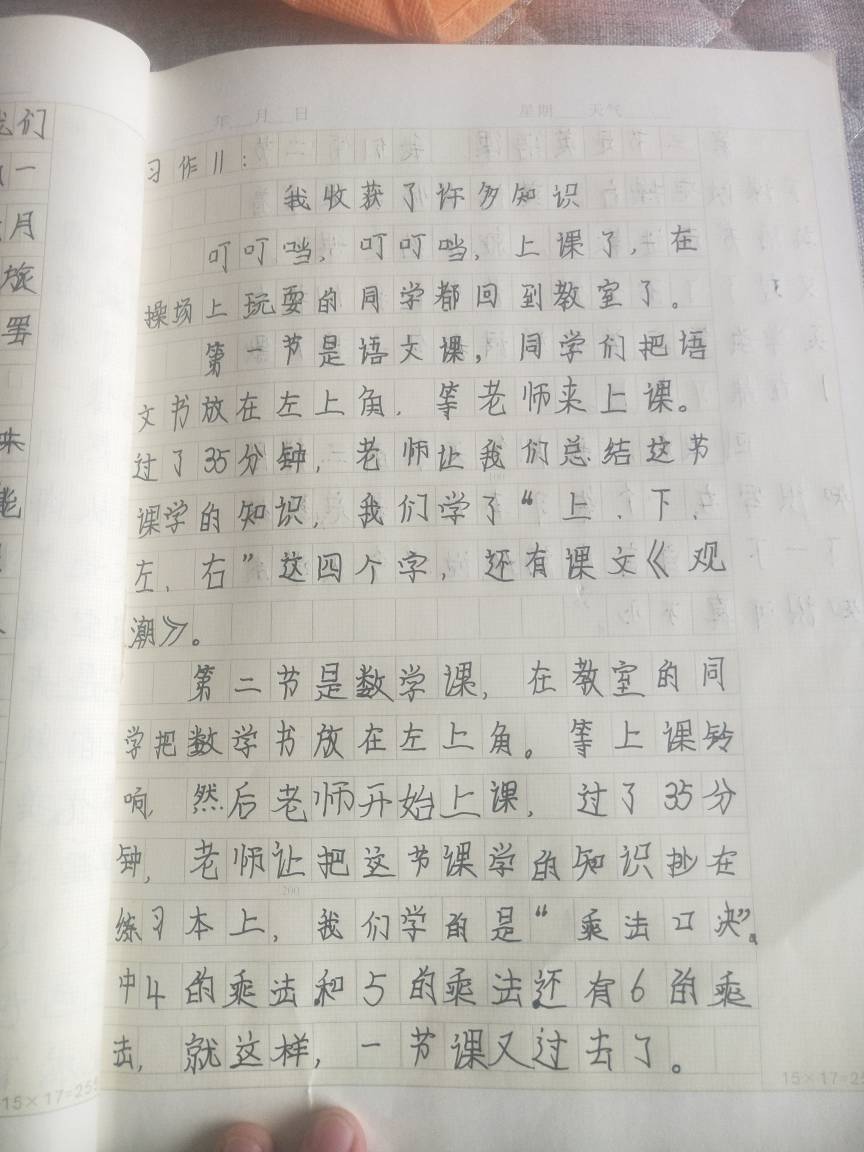 们
一
月
旅
罢
年 月 日 星期 天气
习作11：
我收获了许多知识
叮叮当，叮叮当，上课了，在
操场上玩耍的同学都回到教室了。
第一节是语文课，同学们把语
文书放在左上角．等老师来上课。
过了35分钟，老师让我们总结这节
课学的知识，我们学了“上、下、
左、右”这四个字，还有课文《观
潮》。
第二节是数学课，在教室的同
学把数学书放在左上角。等上课铃
响，然后老师开始上课，过了35分
钟，老师让把这节课学的知识抄在
200
练习本上，我们学的是“乘法口决”。
中4的乘法和5的乘法还有6的乘
法，就这样，一节课又过去了。
15×17=255
15×17=25